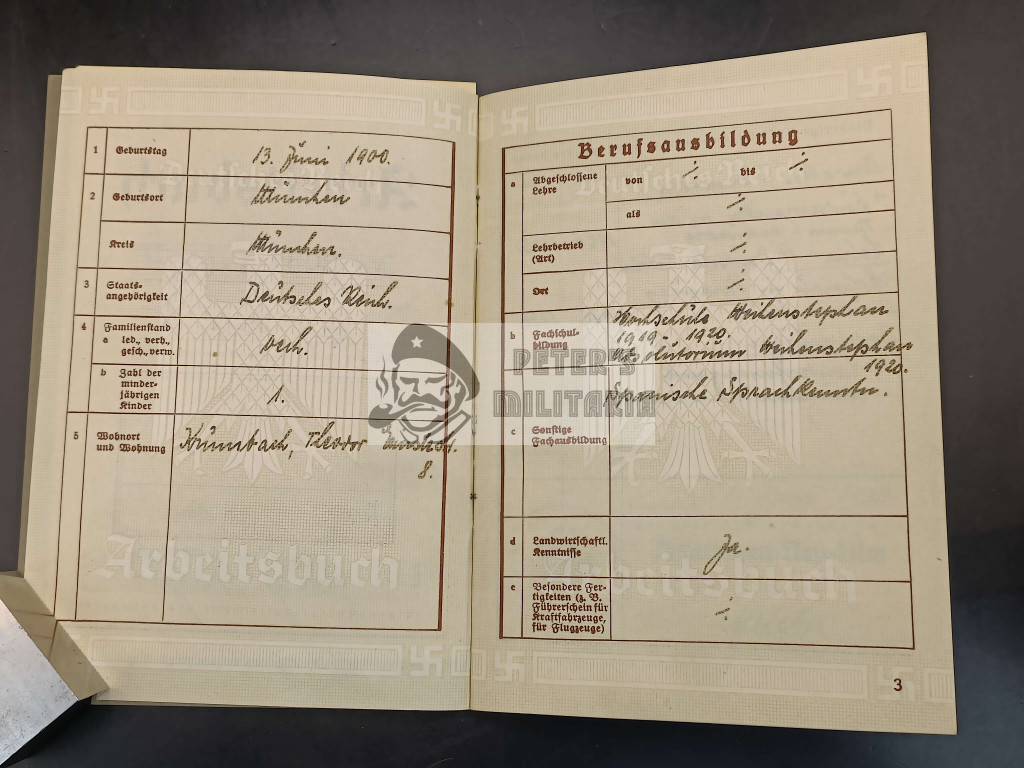 1 Geburtstag 13. Juni 1900.
2 Geburtsort München
Kreis München.
3 Staats-
angehörigkeit Deutsches Reich.
4 Familienstand
a led., verh., verh.
gesch., verw.
b Zahl der
minder-
jährigen 1.
Kinder
5 Wohnort Kulmbach, Theodor
und Wohnung 8.
Arbeitsbuch
Berufsausbildung
a Abgeschlossene von ./. bis ./.
Lehre
als ./.
Lehrbetrieb ./.
(Art)
Ort ./.
b Fachschul-
bildung
Hochschule Weihenstephan
1919 - 1920.
Absolutorium Weihenstephan
1920.
Spanische Sprachkenntn.
c Sonstige
Fachausbildung
d Landwirtschaftl. Ja.
Kenntnisse
e Besondere Fer-
tigkeiten (z. B.
Führerschein für ./.
Kraftfahrzeuge,
für Flugzeuge)
Arbeitsbuch
3
PETER'S
MILITARIA